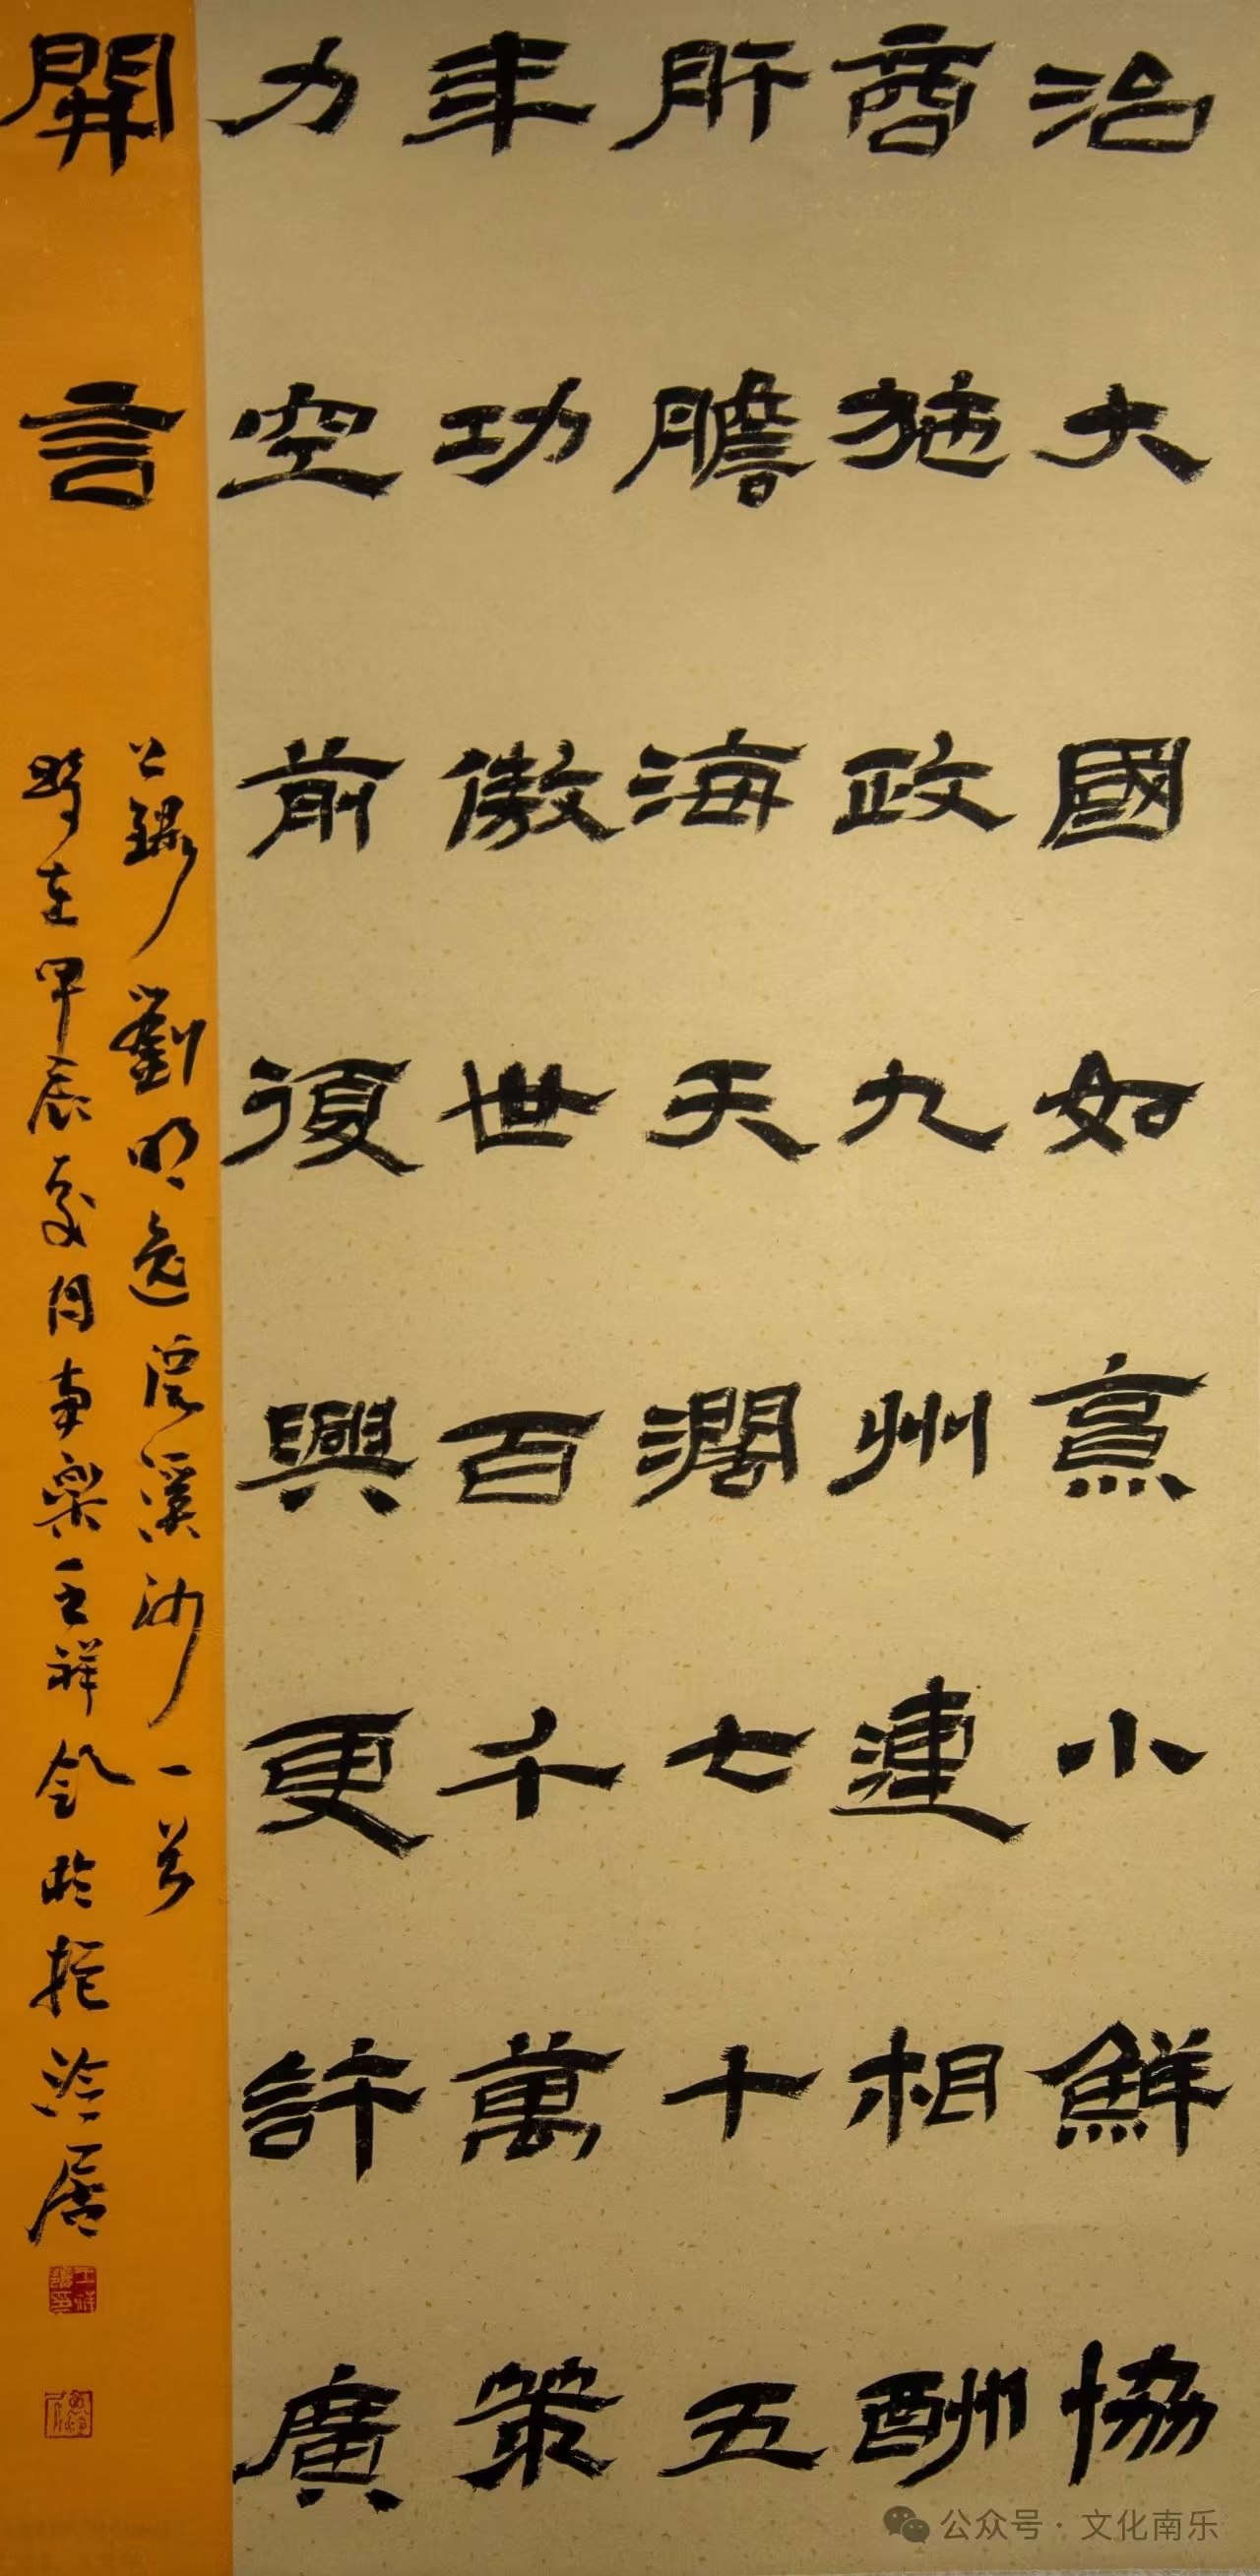 治大國如烹小鮮協
商施政九州連相酬
肝膽海天濶七十五
年功傲世百千萬策
力空前復興更許廣
開言
錄劉明逸浣溪沙一首
時在甲辰夏月南樂王祥於居
公众号·文化南乐